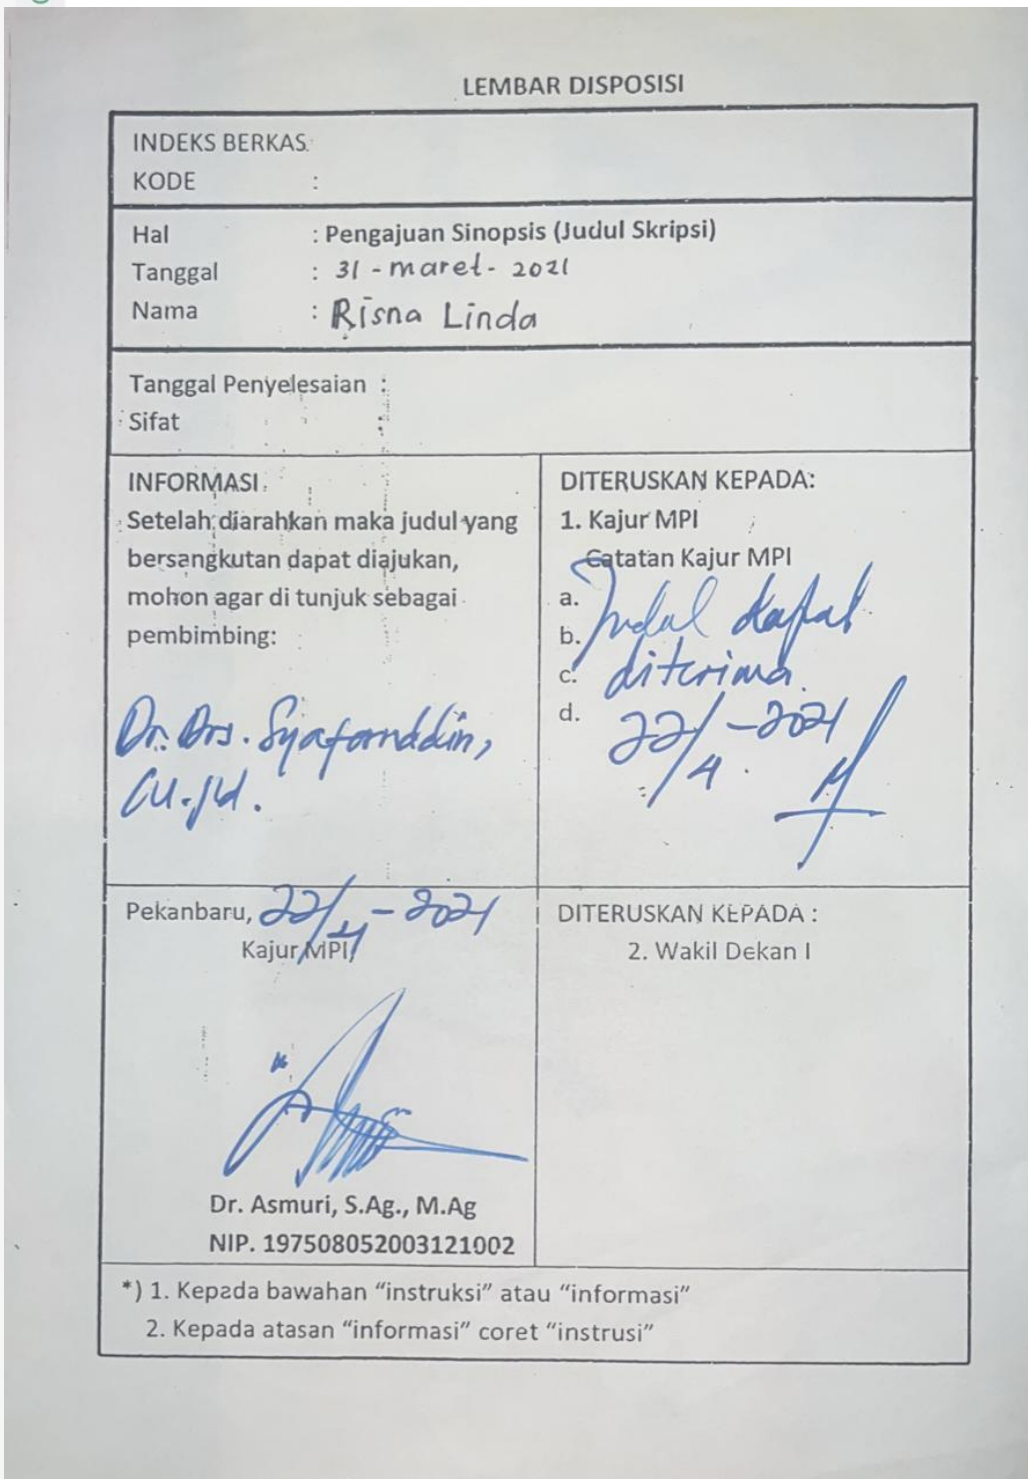 LEMBAR DISPOSISI
INDEKS BERKAS:
KODE :
Hal : Pengajuan Sinopsis (Judul Skripsi)
Tanggal : 31 - maret - 2021
Nama : Risna Linda
Tanggal Penyelesaian :
Sifat :
INFORMASI
Setelah diarahkan maka judul yang
bersangkutan dapat diajukan,
mohon agar di tunjuk sebagai
pembimbing:
Dr. Drs. Syafaruddin,
M.Pd.
DITERUSKAN KEPADA:
1. Kajur MPI
Catatan Kajur MPI
a.
b. Judul dapat
c. diterima
d. 22/4 - 2021
Pekanbaru, 22/4 - 2021
Kajur MPI
Dr. Asmuri, S.Ag., M.Ag
NIP. 197508052003121002
DITERUSKAN KEPADA :
2. Wakil Dekan I
*) 1. Kepada bawahan “instruksi” atau “informasi”
2. Kepada atasan “informasi” coret “instrusi”